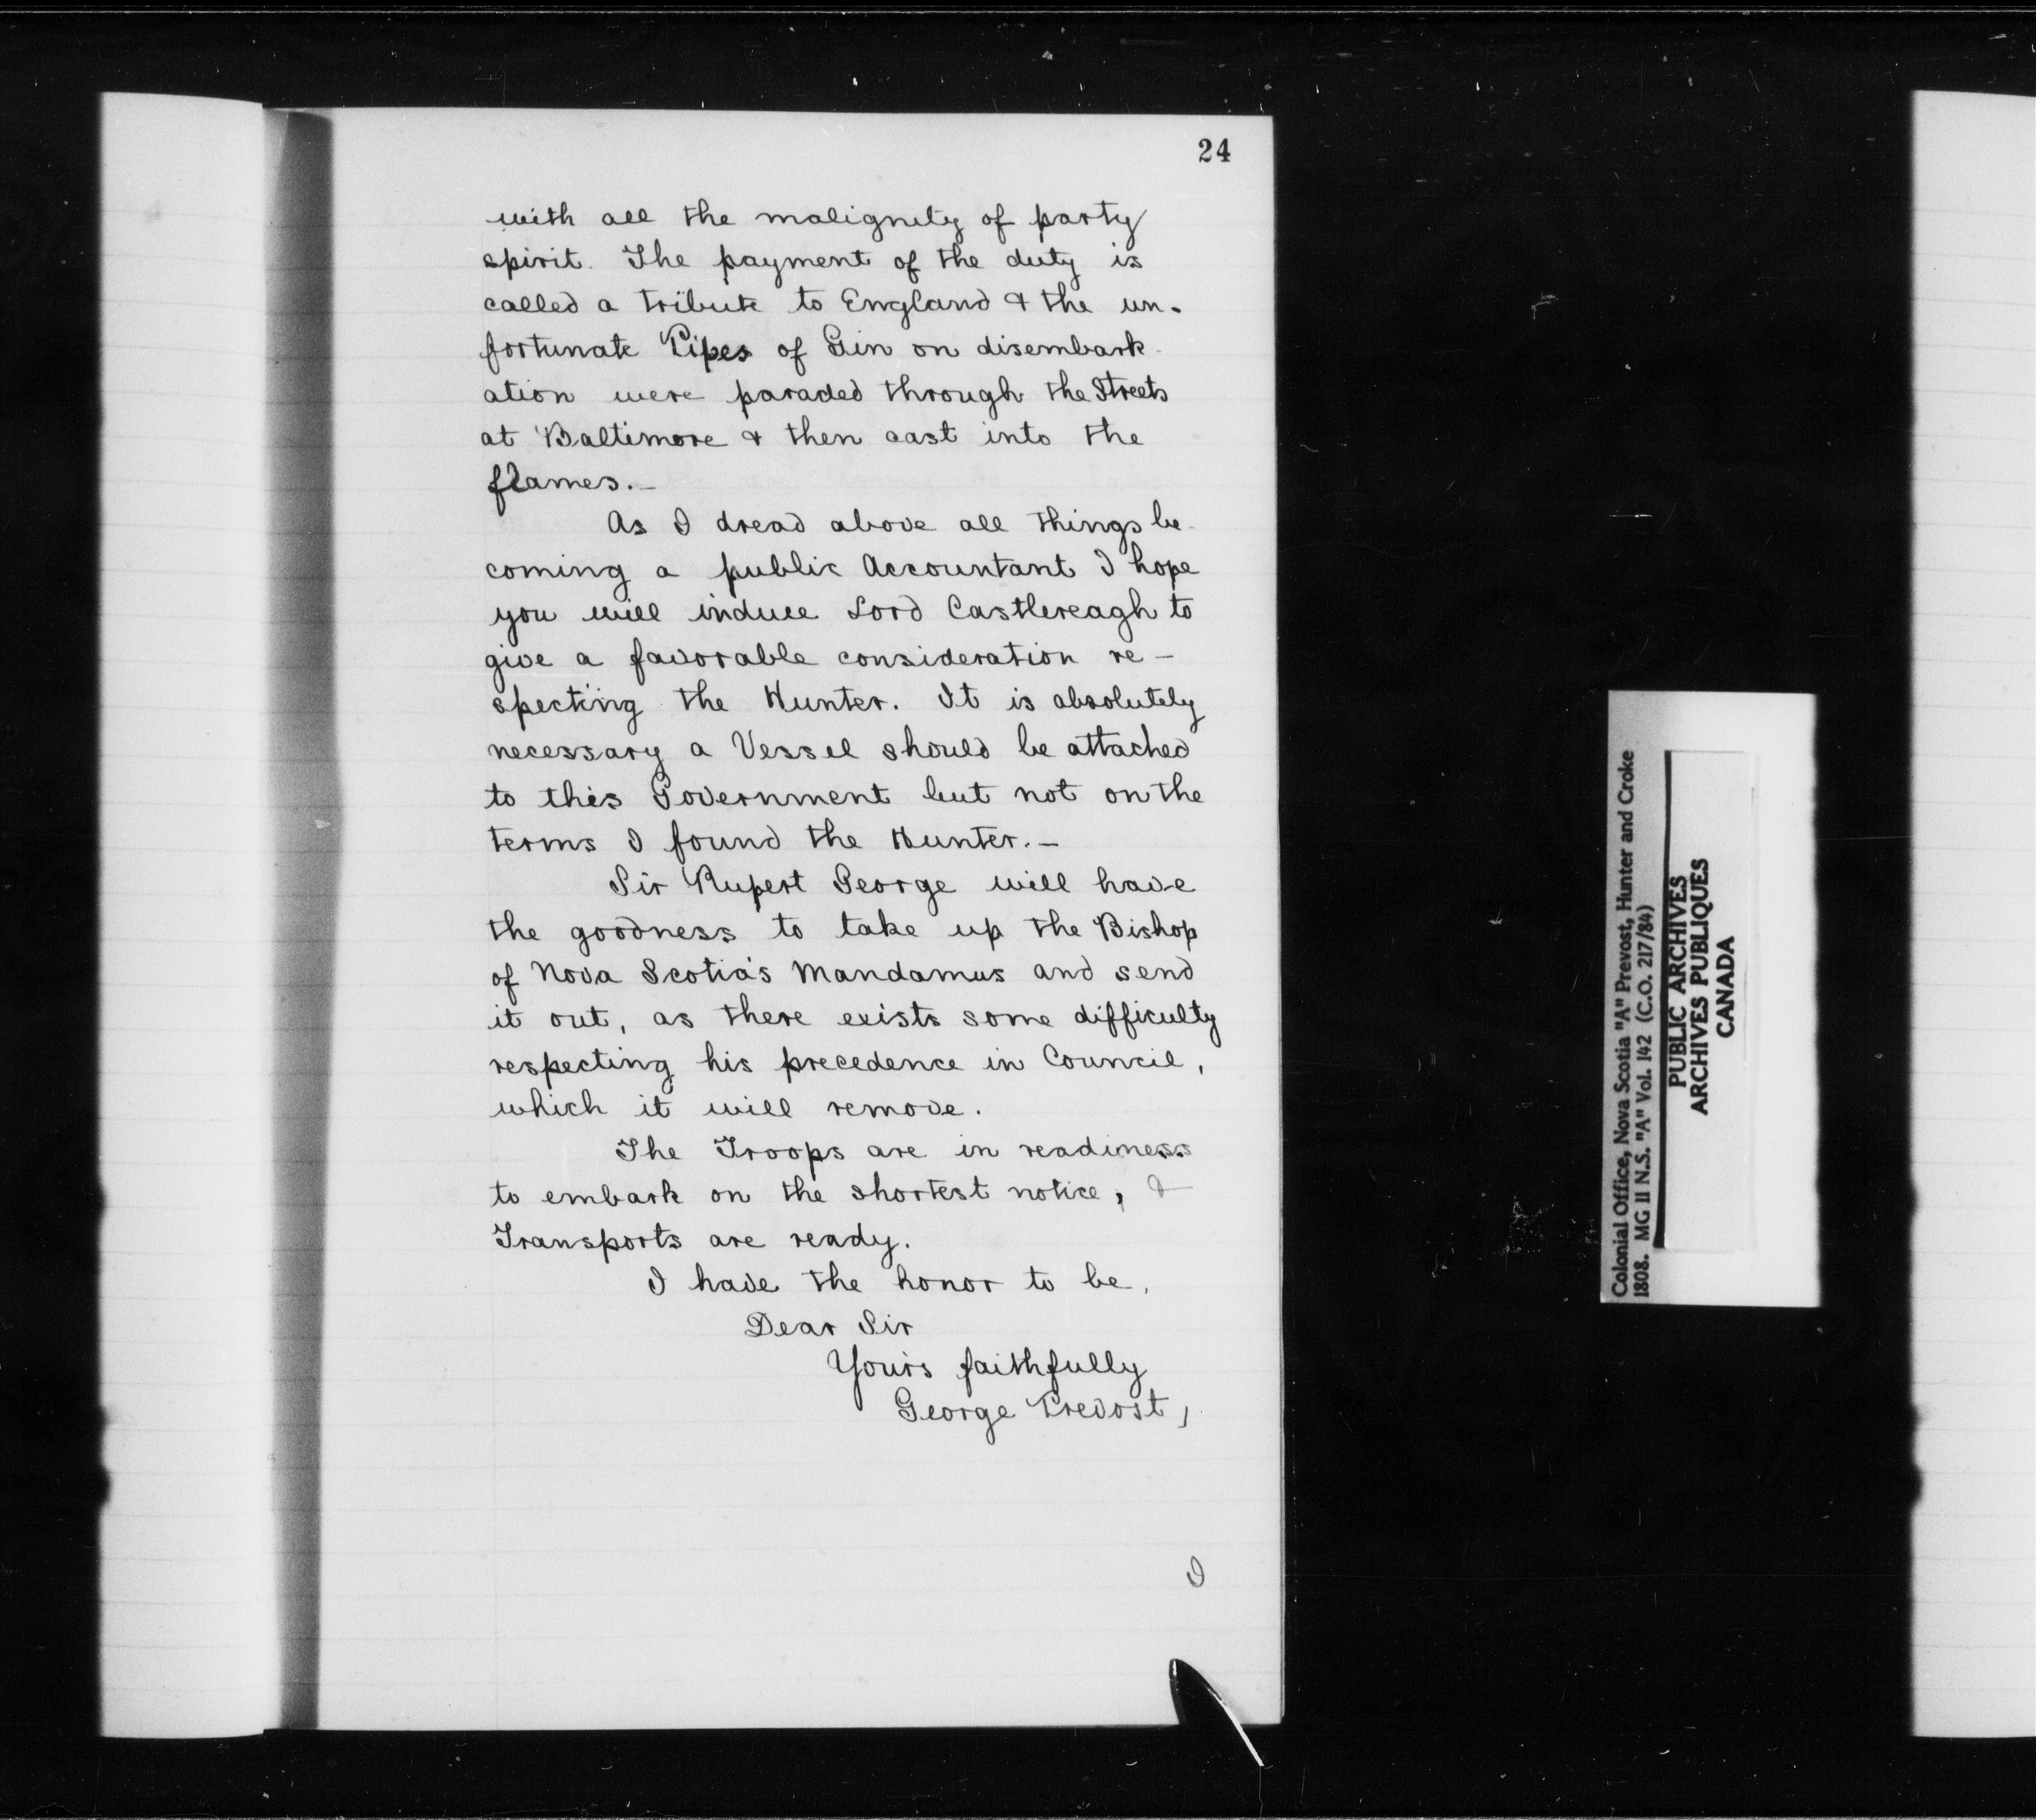 24
with all the malignity of party
spirit. The payment of the duty is
called a tribute to England & the un-
fortunate Pipes of Gin on disembark-
ation were paraded through the Streets
at Baltimore & then cast into the
flames.—
As I dread above all things be-
coming a public Accountant I hope
you will induce Lord Castlereagh to
give a favorable consideration re-
specting the Hunter. It is absolutely
necessary a Vessel should be attached
to this Government but not on the
terms I found the Hunter.—
Sir Rupert George will have
the goodness to take up the Bishop
of Nova Scotia's Mandamus and send
it out, as there exists some difficulty
respecting his precedence in Council,
which it will remove.
The Troops are in readiness
to embark on the shortest notice, &
Transports are ready.
I have the honor to be,
Dear Sir
Yours faithfully
George Prevost,
I
Colonial Office, Nova Scotia "A" Prevost, Hunter and Croke
1808. MG 11 N.S. "A" Vol. 142 (C.O. 217/84)
PUBLIC ARCHIVES
ARCHIVES PUBLIQUES
CANADA